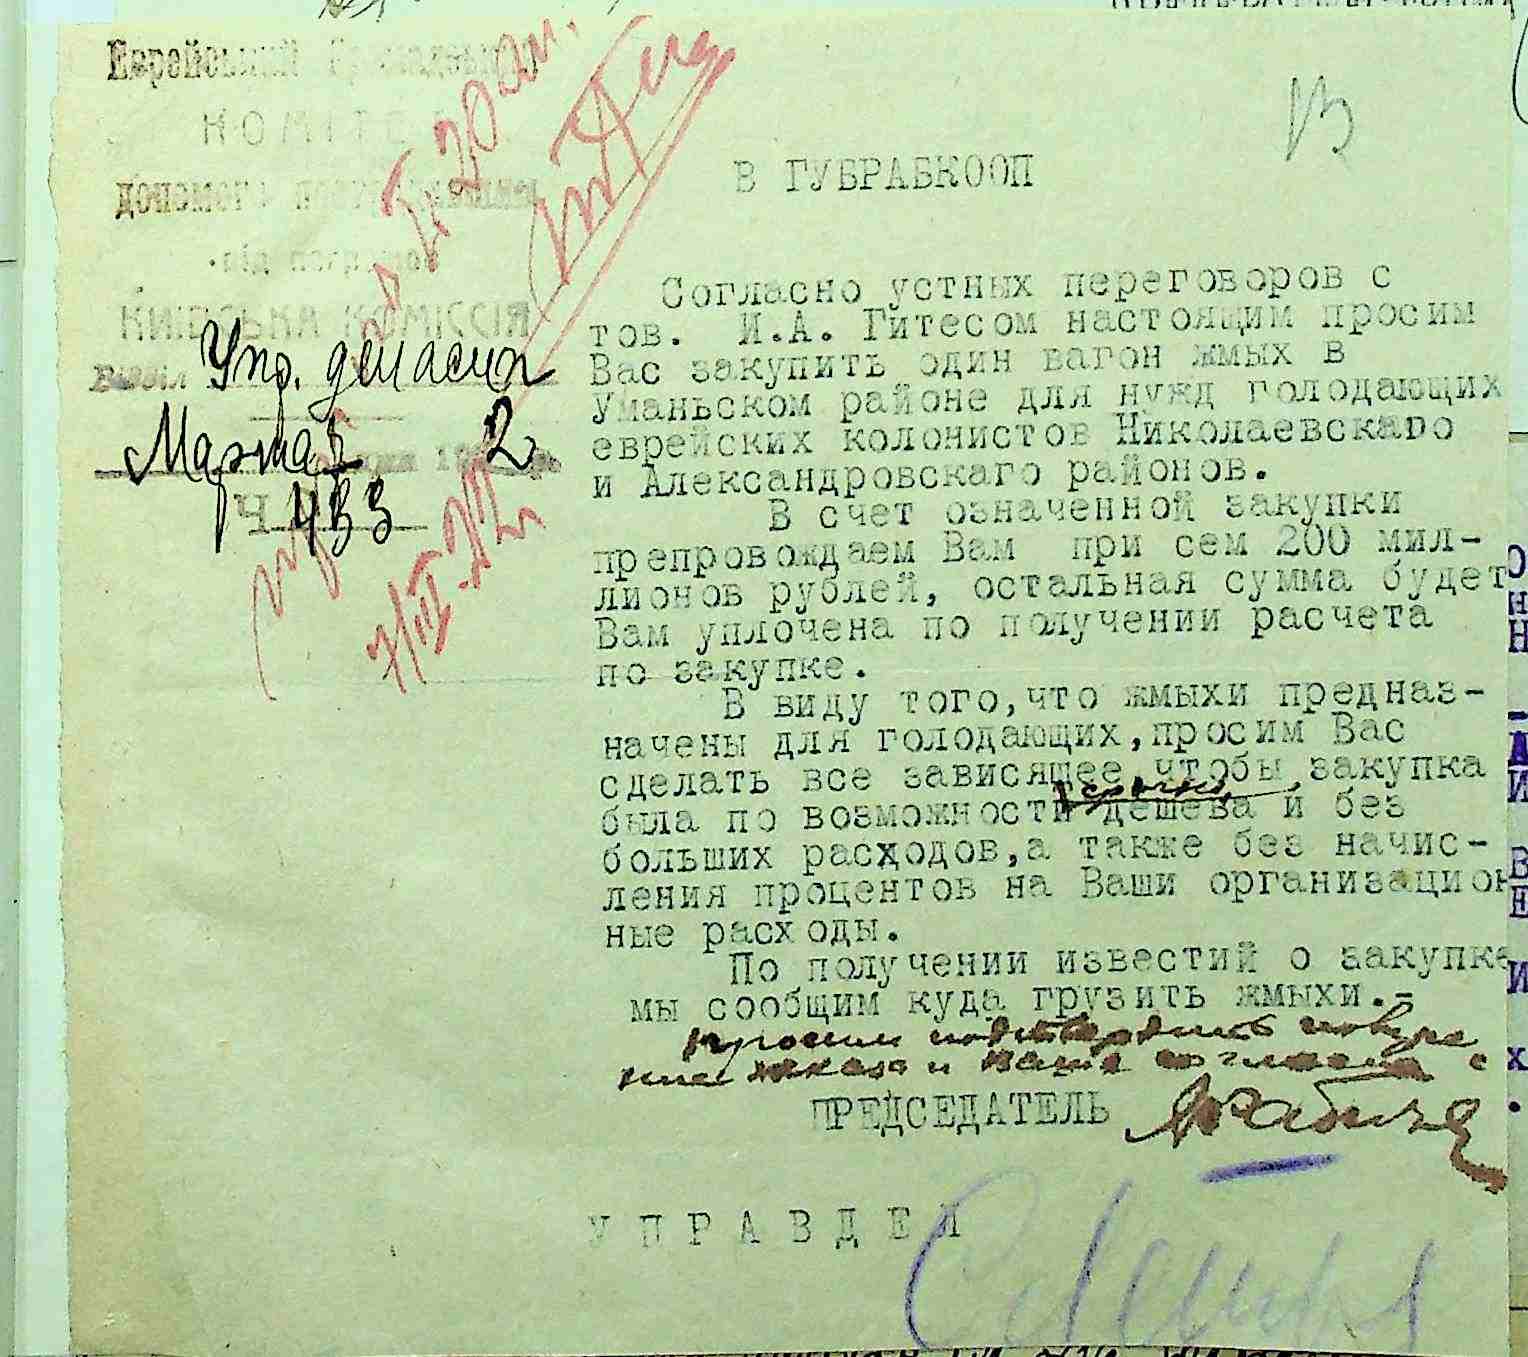 Еврейський Громадський
КОМІТЕТ
допомоги
КИЇВСЬКА КОМІССІЯ
Відділ Упр. делами
Марта 2
Ч 433
7/III-22
В ГУБРАБКООП
Согласно устных переговоров с
тов. И.А. Гитесом настоящим просим
Вас закупить один вагон жмых в
Уманьском районе для нужд голодающих
еврейских колонистов Николаевскаго
и Александровскаго районов.
В счет означенной закупки
препровождаем Вам при сем 200 мил-
лионов рублей, остальная сумма будет
Вам уплочена по получении расчета
по закупке.
В виду того,что жмыхи предназ-
начены для голодающих,просим Вас
сделать все зависящее чтобы закупка
срочна,
была по возможности дешева и без
больших расходов,а также без начис-
ления процентов на Ваши организацион
ные расходы.
По получении известий о закупке
мы сообщим куда грузить жмыхи.-
просим подтвердить получе
ние заказа и Ваше согласие с
ПРЕДСЕДАТЕЛЬ
УПРАВДЕЛ